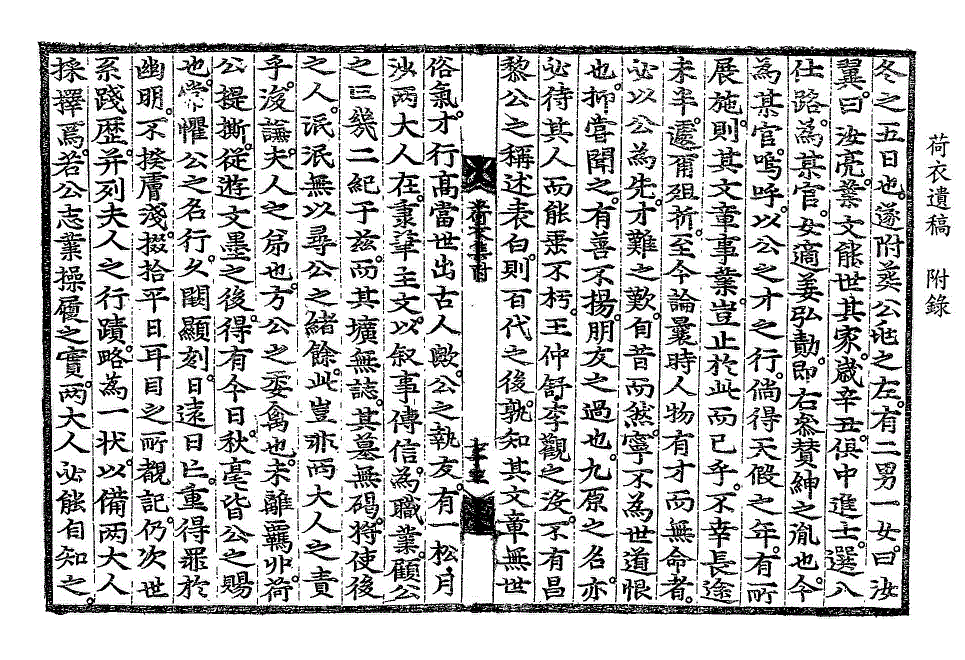 荷衣遺稿 附錄
冬之五日也遂附葬公地之左有二男一女曰汝
翼曰汝亮業文能世其家歲辛丑俱中進士選入
仕路爲某官女適姜弘勣卽右參贊紳之胤也今
爲某官嗚呼以公之才之行倘得天假之年有所
展施則其文章事業豈止於此而已乎不幸長途
未半遽爾殂折至今論曩時人物有才而無命者
必以公爲先才難之歎自昔而然寧不爲世道恨
也抑嘗聞之有善不揚朋友之過也九原之名亦
必待其人而能垂不朽王仲舒李觀之沒不有昌
黎公之稱述表白則百代之後孰知其文章無世
荷衣集附
俗氣才行高當世出古人歟公之執友有一松月
沙兩大人在秉筆主文以叙事傳信爲職業顧公
之亡幾二紀于玆而其壙無誌其墓無碣將使後
之人泯泯無以尋公之緖餘此豈非兩大人之責
乎浚謙夫人之弟也方公之委禽也未離羈丱荷
公提撕從遊文墨之後得有今日秋毫皆公之賜
也常懼公之名行久閟顯刻日遠日亡重得罪於
幽明不揆膚淺掇拾平日耳目之所覩記仍次世
系踐歷幷列夫人之行蹟略爲一狀以備兩大人
採擇焉若公志業操履之實兩大人必能自知之